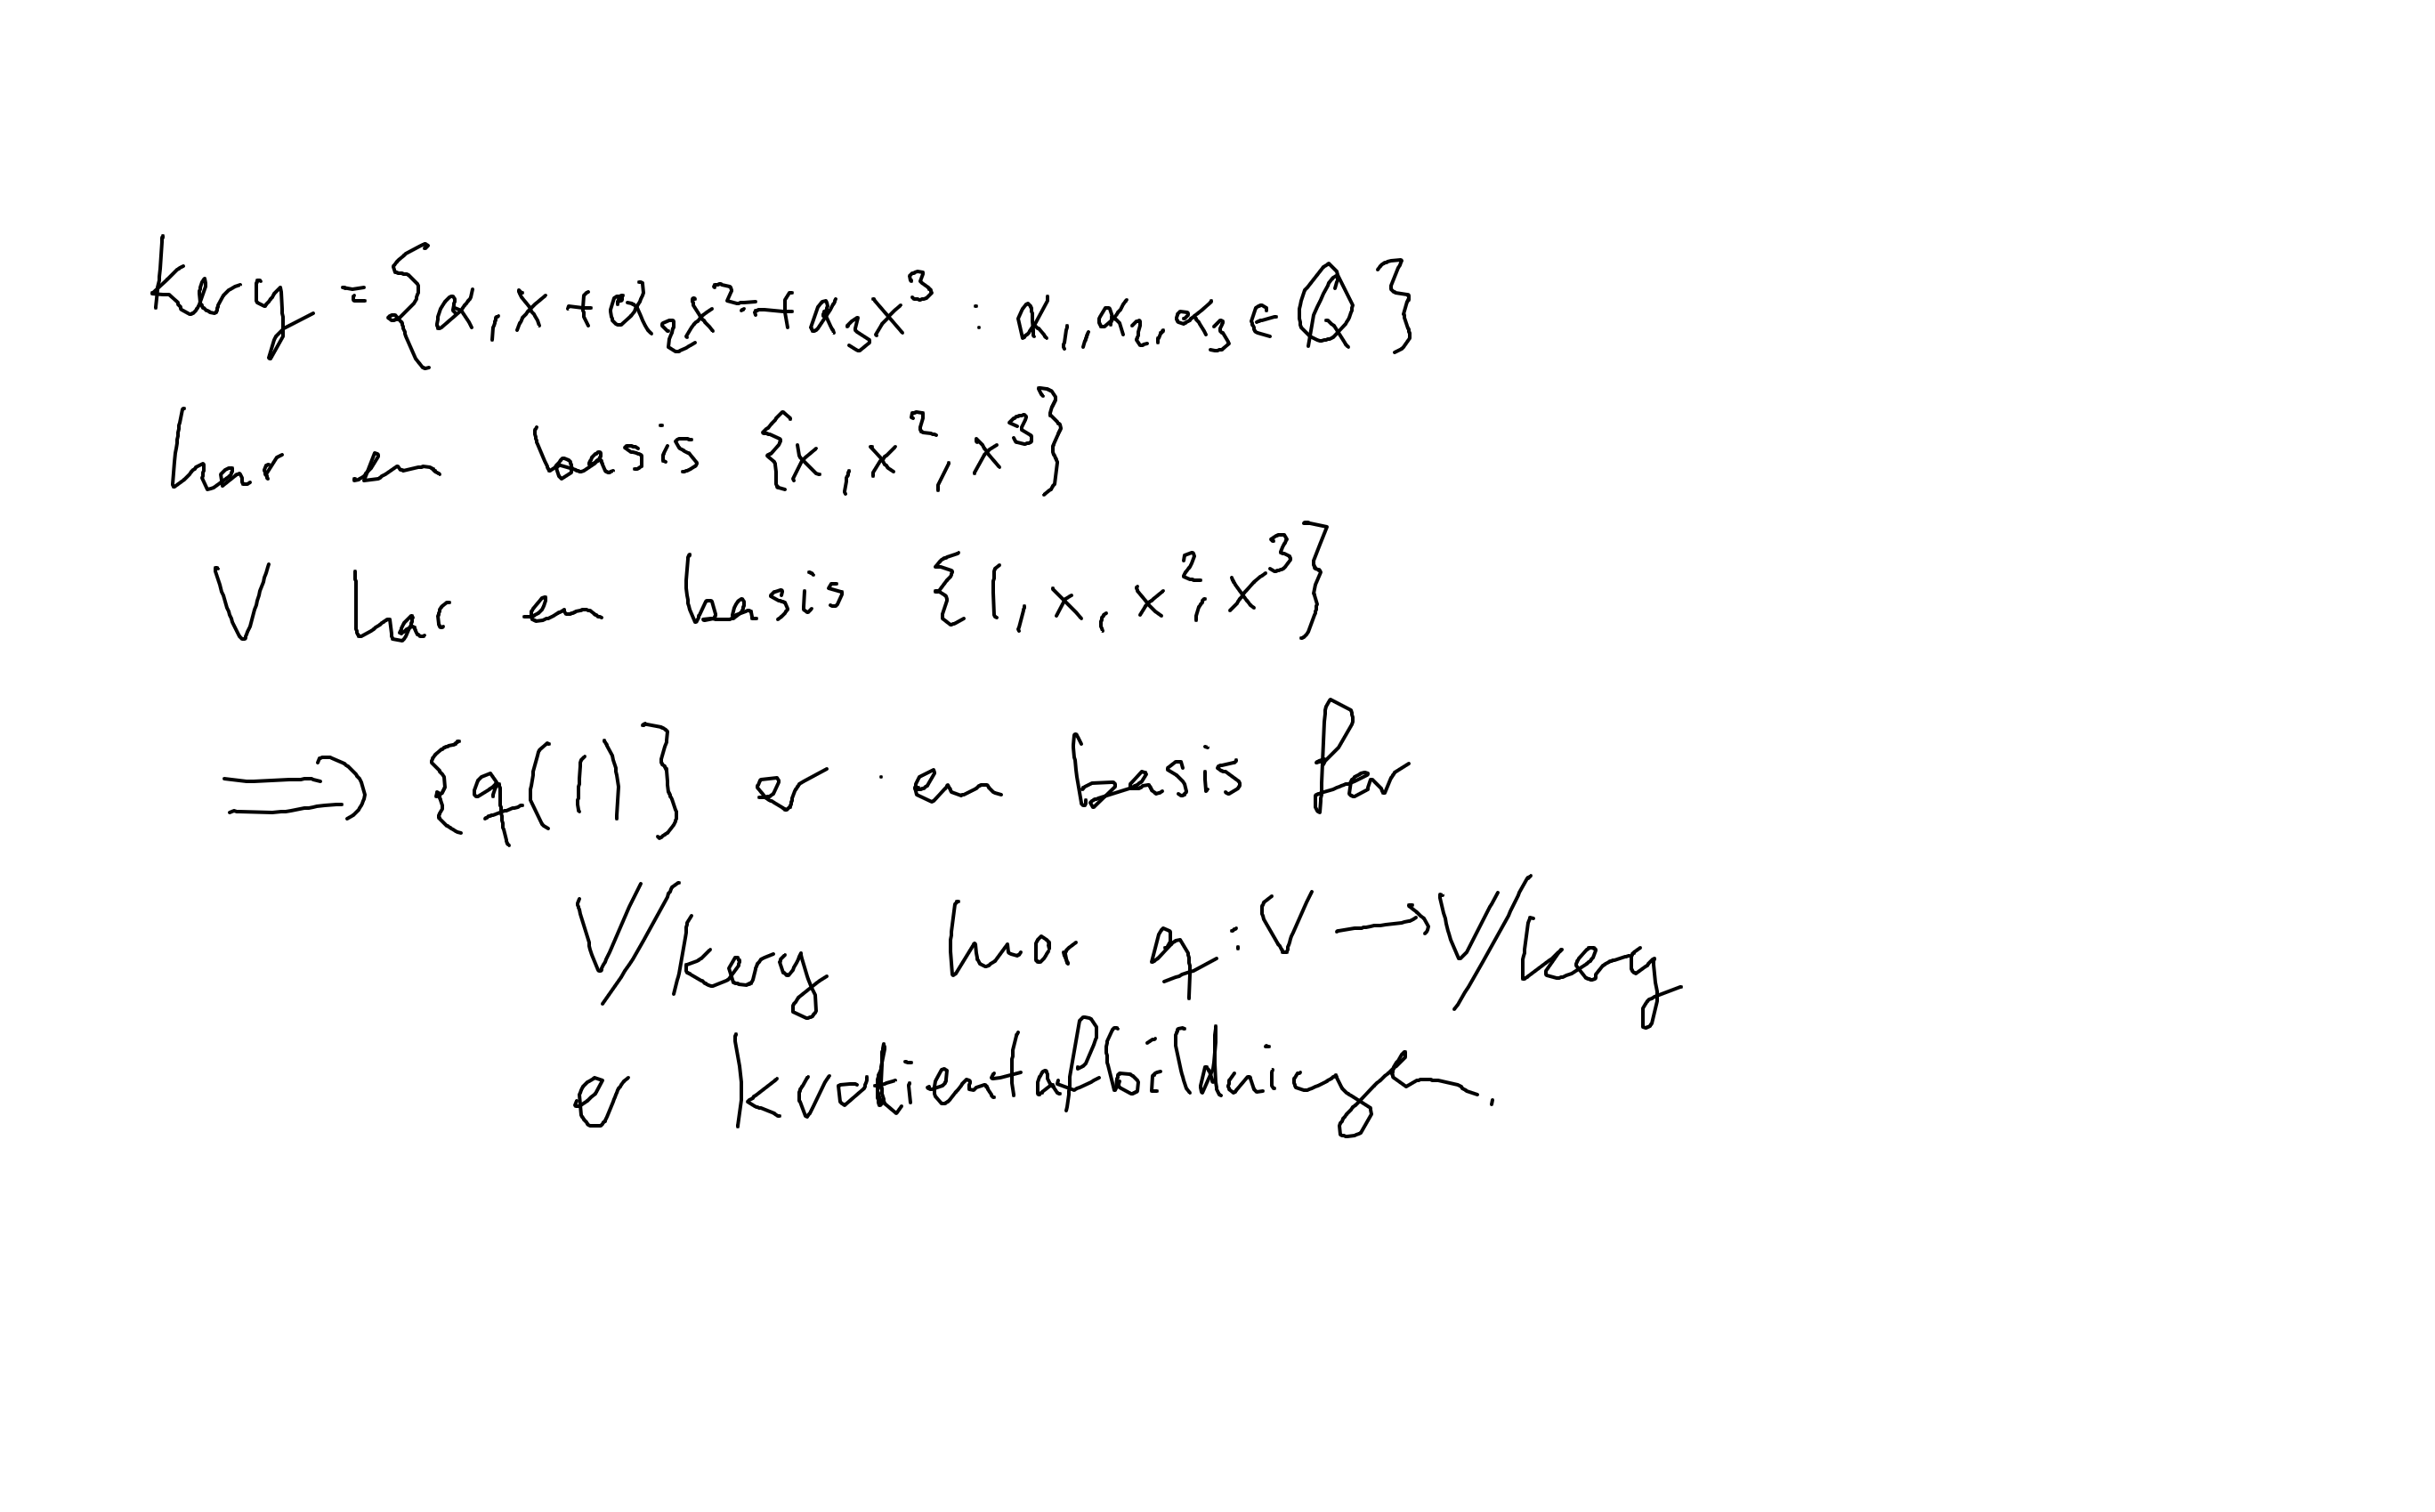 ker g = {a₁x + a₂x² + a₃x³ : a₁, a₂, a₃ ∈ Q}
har en basis {x, x², x³}
V har en basis {1, x, x², x³}
⇒ {q(1)} er en basis for
V/ker g hvor q: V → V/ker g
er kvotientafbildningen.